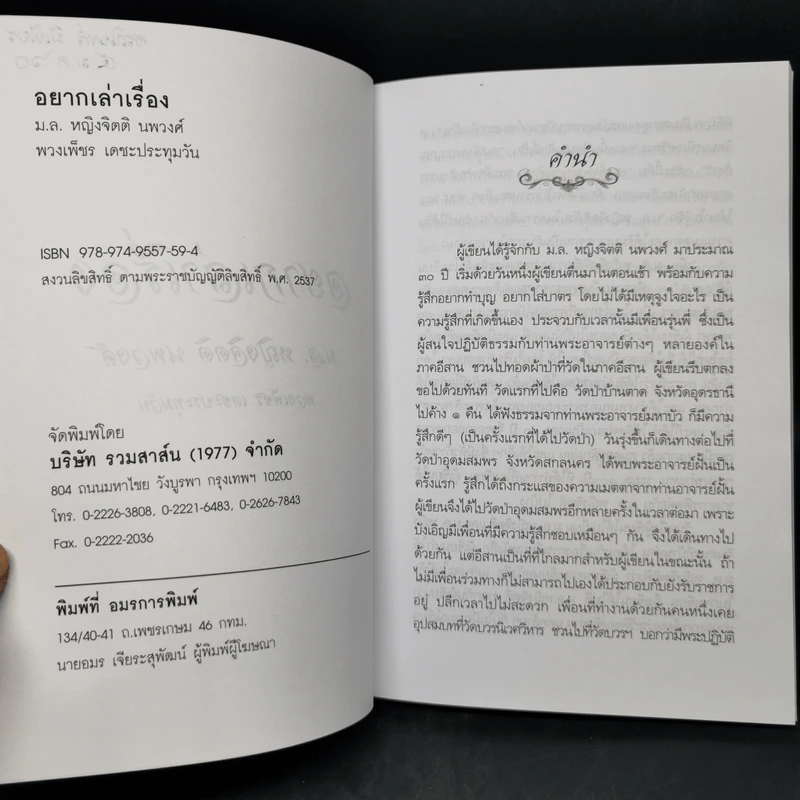 อยากเล่าเรื่อง
ม.ล. หญิงจิตติ นพวงศ์
พวงเพ็ชร เดชะประทุมวัน
ISBN 978-974-9557-59-4
สงวนลิขสิทธิ์ ตามพระราชบัญญัติลิขสิทธิ์ พ.ศ. 2537
จัดพิมพ์โดย
บริษัท รวมสาส์น (1977) จำกัด
804 ถนนมหาไชย วังบูรพา กรุงเทพฯ 10200
โทร. 0-2226-3808, 0-2221-6483, 0-2626-7843
Fax. 0-2222-2036
พิมพ์ที่ อมรการพิมพ์
134/40-41 ถ.เพชรเกษม 46 กทม.
นายอมร เจียระสุพัฒน์ ผู้พิมพ์ผู้โฆษณา
คำนำ
ผู้เขียนได้รู้จักกับ ม.ล. หญิงจิตติ นพวงศ์ มาประมาณ
๓๐ ปี เริ่มด้วยวันหนึ่งผู้เขียนตื่นมาในตอนเช้า พร้อมกับความ
รู้สึกอยากทำบุญ อยากใส่บาตร โดยไม่ได้มีเหตุจูงใจอะไร เป็น
ความรู้สึกที่เกิดขึ้นเอง ประจวบกับเวลานั้นมีเพื่อนรุ่นพี่ ซึ่งเป็น
ผู้สนใจปฏิบัติธรรมกับท่านพระอาจารย์ต่างๆ หลายองค์ใน
ภาคอีสาน ชวนไปทอดผ้าป่าที่วัดในภาคอีสาน ผู้เขียนรีบตกลง
ขอไปด้วยทันที วัดแรกที่ไปคือ วัดป่าบ้านตาด จังหวัดอุดรธานี
ไปค้าง ๑ คืน ได้ฟังธรรมจากท่านพระอาจารย์มหาบัว ก็มีความ
รู้สึกดีๆ (เป็นครั้งแรกที่ได้ไปวัดป่า) วันรุ่งขึ้นก็เดินทางต่อไปที่
วัดป่าอุดมสมพร จังหวัดสกลนคร ได้พบพระอาจารย์ฝั้นเป็น
ครั้งแรก รู้สึกได้ถึงกระแสของความเมตตาจากท่านอาจารย์ฝั้น
ผู้เขียนจึงได้ไปวัดป่าอุดมสมพรอีกหลายครั้งในเวลาต่อมา เพราะ
บังเอิญมีเพื่อนที่มีความรู้สึกชอบเหมือนๆ กัน จึงได้เดินทางไป
ด้วยกัน แต่อีสานเป็นที่ที่ไกลมากสำหรับผู้เขียนในขณะนั้น ถ้า
ไม่มีเพื่อนร่วมทางก็ไม่สามารถไปเองได้ประกอบกับยังรับราชการ
อยู่ ปลีกเวลาไปไม่สะดวก เพื่อนที่ทำงานด้วยกันคนหนึ่งเคย
อุปสมบทที่วัดบวรนิเวศวิหาร ชวนไปที่วัดบวรฯ บอกว่ามีพระปฏิบัติ